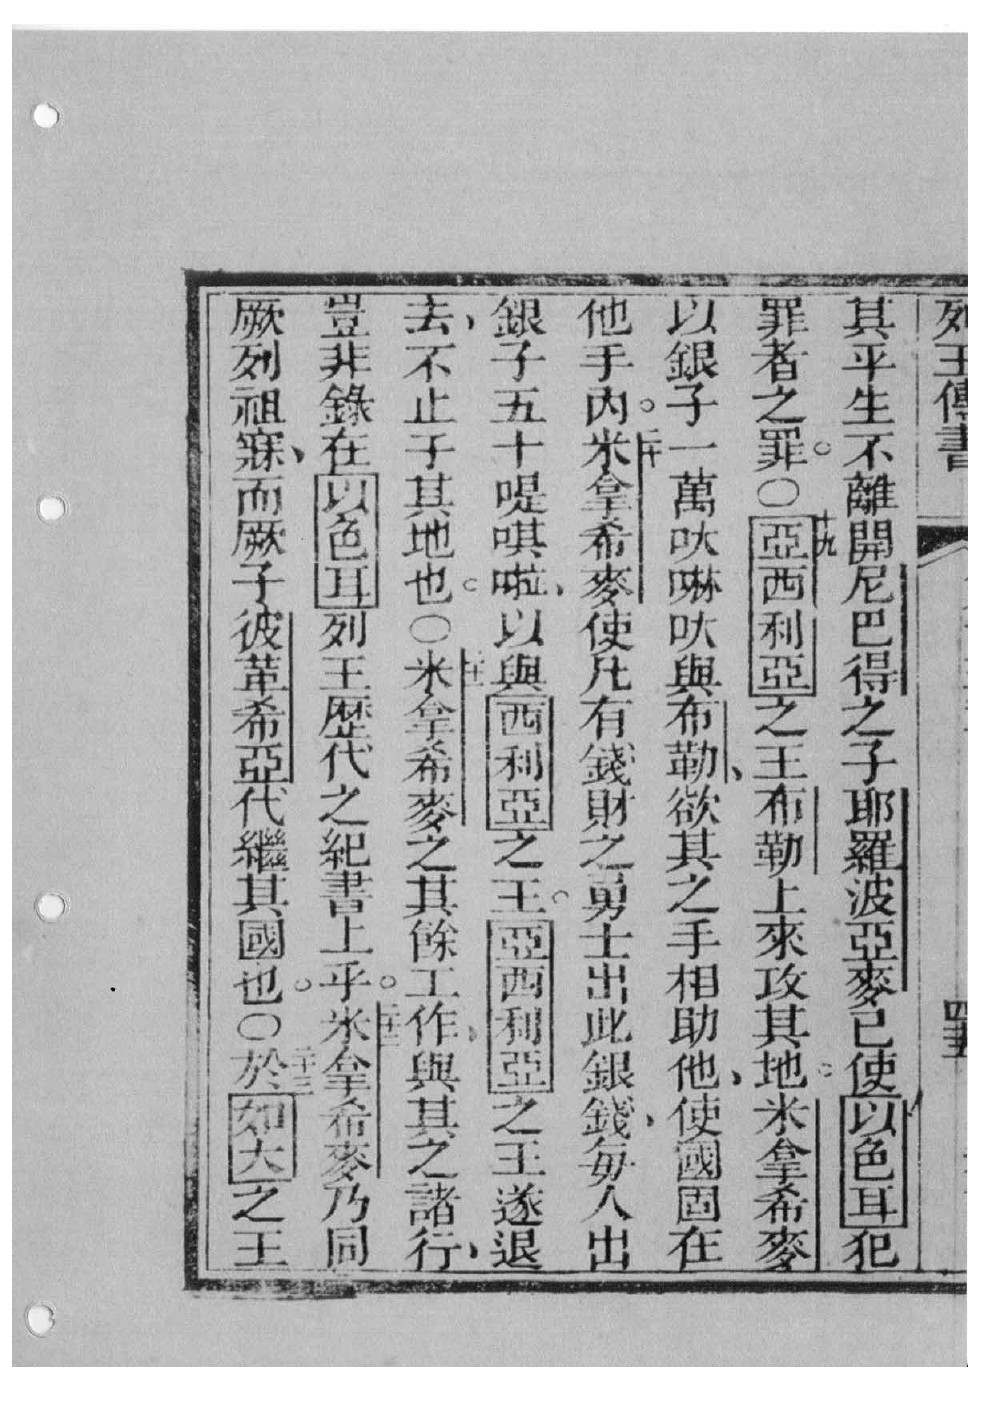 列王傳書
其平生不離開尼巴得之子耶羅波亞麥已使以色耳犯
罪者之罪。〇十九亞西利亞之王布勒上來攻其地。米拿希麥
以銀子一萬呔㖼呔與布勒、欲其之手相助他、使國固在
他手內。二十米拿希麥使凡有錢財之勇士出此銀錢、每人出
銀子五十㖷唭啦、以與西利亞之王。亞西利亞之王遂退
去、不止于其地也。〇二十一米拿希麥之其餘工作、與其之諸行、
豈非錄在以色耳列王歷代之紀書上乎。二十二米拿希麥乃同
厥列祖寐、而厥子彼革希亞代繼其國也。〇二十三於如大之王